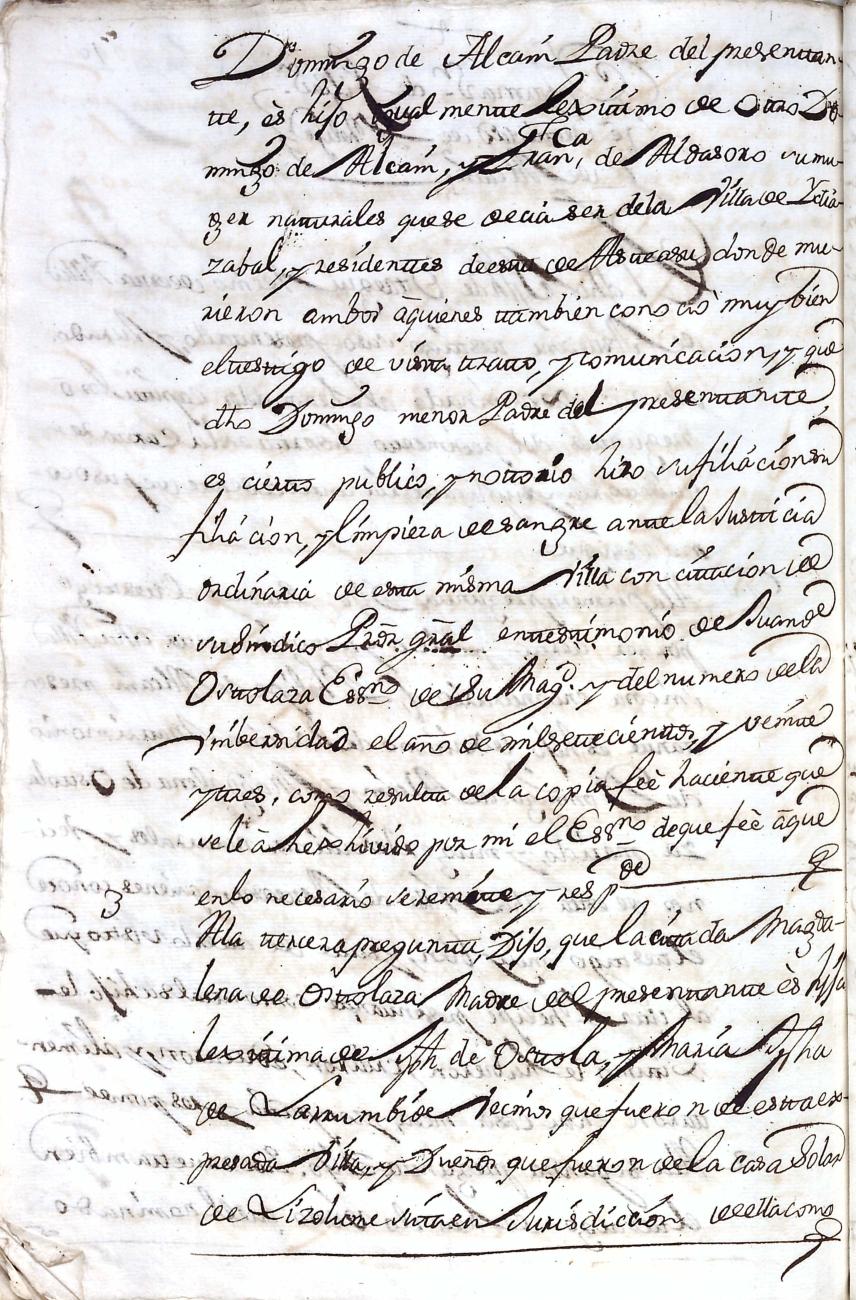 Domingo de Alcain Padre del presentan-
te, ês hijo igual mente lexitimo de otro Do-
mingo de Alcain, y Fran.ca de Aldasoro su mu-
ger naturales que se decia ser dela Villa de Ydia-
zabal, y residentes de esta de Asteasu donde mu-
rieron ambos â quienes tambien conociò muy bien
el testigo de vista, trato, y comunicacion, y que
dho Domingo menor Padre del presentante
es cierto publico, y nottorio hizo su filiacion su
filiacion, y limpieza de sangre ante la Justicia
ordinaria de esta misma Villa con citacion de
su Sindico Prôr grãl en testimonio de Juan de
Ostolaza Essno de Su Magd. y del numero de la
Vnibersidad el año de mil setecientos, y veinte
y tres, como resulta de la copia feè haciente que
se le â hexsivido por mi el Essno de que feè â que
en lo necesario se remite, y resp.de
Ala tercera pregunta, Dijo, que la citada Magda-
lena de Ostolaza Madre del presentante ès hija
lexitima de Jph de Ostola, y Maria Jpha
de Larrumbide Vecinos que fueron de esta ex-
presada Villa, y Dueños que fueron de la casa Solar
de Lizolume sita en Jurisdiccion de ella como